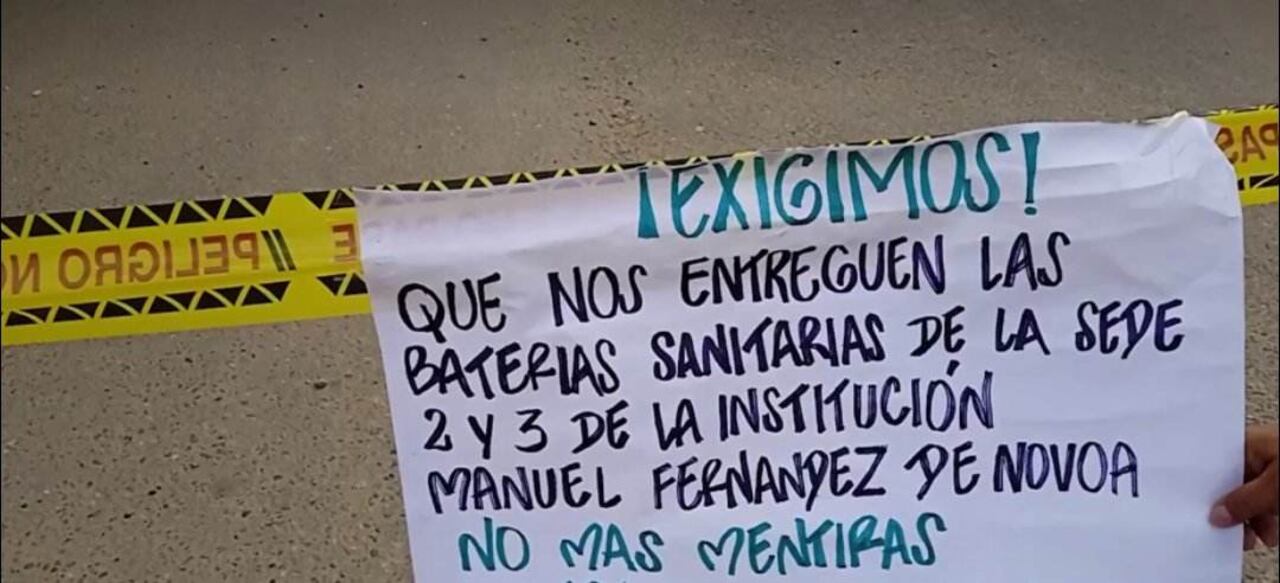 ¡EXIGIMOS!
QUE NOS ENTREGUEN LAS
BATERIAS SANITARIAS DE LA SEDE
2 Y 3 DE LA INSTITUCIÓN
MANUEL FERNANDEZ DE NOVOA
NO MAS MENTIRAS
//PELIGRO NO
PAS